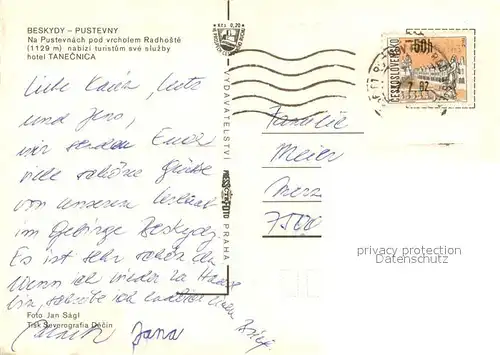 BESKYDY – PUSTEVNY
Na Pustevnách pod vrcholem Radhoště
(1129 m) nabízí turistům své služby
hotel TANEČNICA
Kčs 0,20
ČESKOSLOVENSKO
50h
7. 82
Liebe
und Jens,
wir senden Euch
viele schöne Grüße
von unserem
im Gebirge Beskydy.
Es ist sehr schön da.
Wenn ich wieder zu Hause
bin, schreibe ich
Jana
Familie
Meier
7500
VYDAVATELSTVÍ
PRESSFOTO
PRAHA
privacy protection
Datenschutz
Foto Jan Ságl
Tisk Severografia Děčín